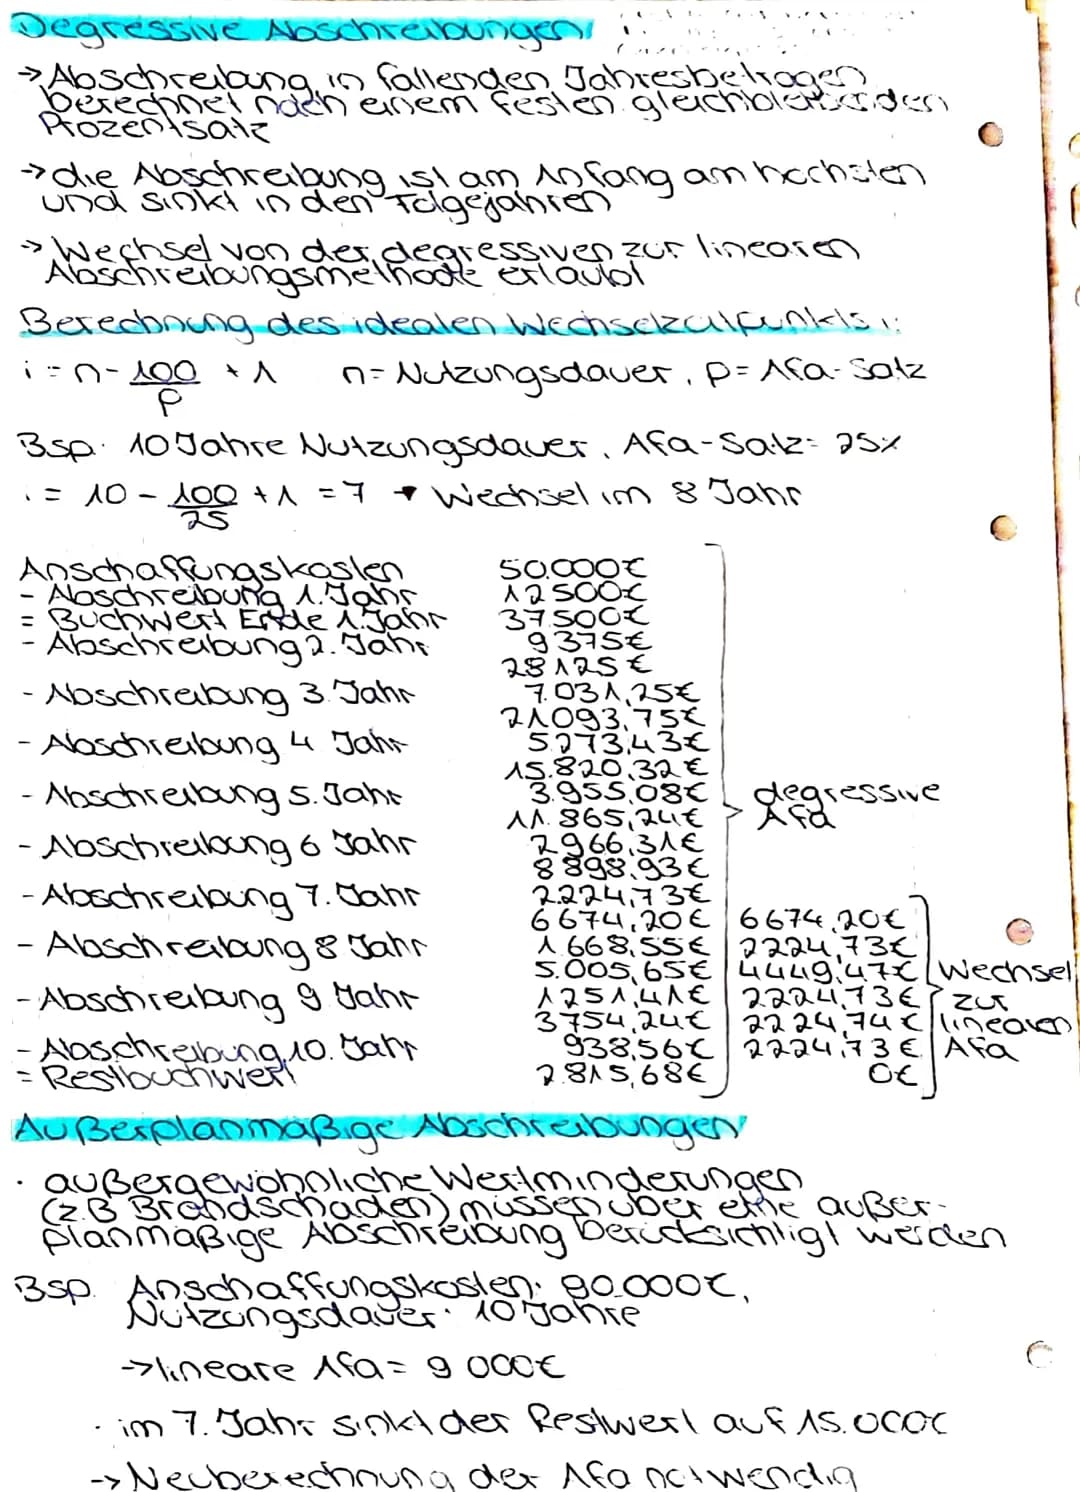 Degressive Abschreibungen
→ Abschreibung in fallenden Jahresbeträgen
berechnet nach einem festen gleichbleibenden
Prozentsatz
→ die Abschreibung ist am Anfang am höchsten
und sinkt in den Folgejahren
→ Wechsel von der degressiven zur linearen
Abschreibungsmethode erlaubt
Berechnung des idealen Wechselzeitpunkts:
i = n - 100/p + 1 n = Nutzungsdauer, p = Afa-Satz
Bsp. 10 Jahre Nutzungsdauer, Afa-Satz = 25%
i = 10 - 100/25 + 1 = 7 → Wechsel im 8 Jahr
Anschaffungskosten 50.000€
- Abschreibung 1. Jahr 12500€
= Buchwert Ende 1. Jahr 37.500€
- Abschreibung 2. Jahr 9375€
28125€
- Abschreibung 3. Jahr 7.031,25€
21093,75€
- Abschreibung 4 Jahr 5273,43€
15.820,32€
- Abschreibung 5. Jahr 3.955,08€ degressive
11.865,24€ Afa
- Abschreibung 6 Jahr 2966,31€
8898,93€
- Abschreibung 7. Jahr 2.224,73€
6674,20€ 6674,20€
- Abschreibung 8 Jahr 1.668,55€ 2224,73€
5.005,65€ 4449,47€ Wechsel
- Abschreibung 9 Jahr 1251,41€ 2224,73€ zur
3754,24€ 2224,74€ linearen
- Abschreibung 10. Jahr 938,56€ 2224,73€ Afa
= Restbuchwert 2.815,68€ 0€
Außerplanmäßige Abschreibungen
· außergewöhnliche Wertminderungen
(z.B Brandschaden) müssen über eine außer-
planmäßige Abschreibung berücksichtigt werden
Bsp. Anschaffungskosten: 90.000€,
Nutzungsdauer: 10 Jahre
→ lineare Afa = 9 000€
· im 7. Jahr sinkt der Restwert auf 15.000€
→ Neuberechnung der Afa notwendig